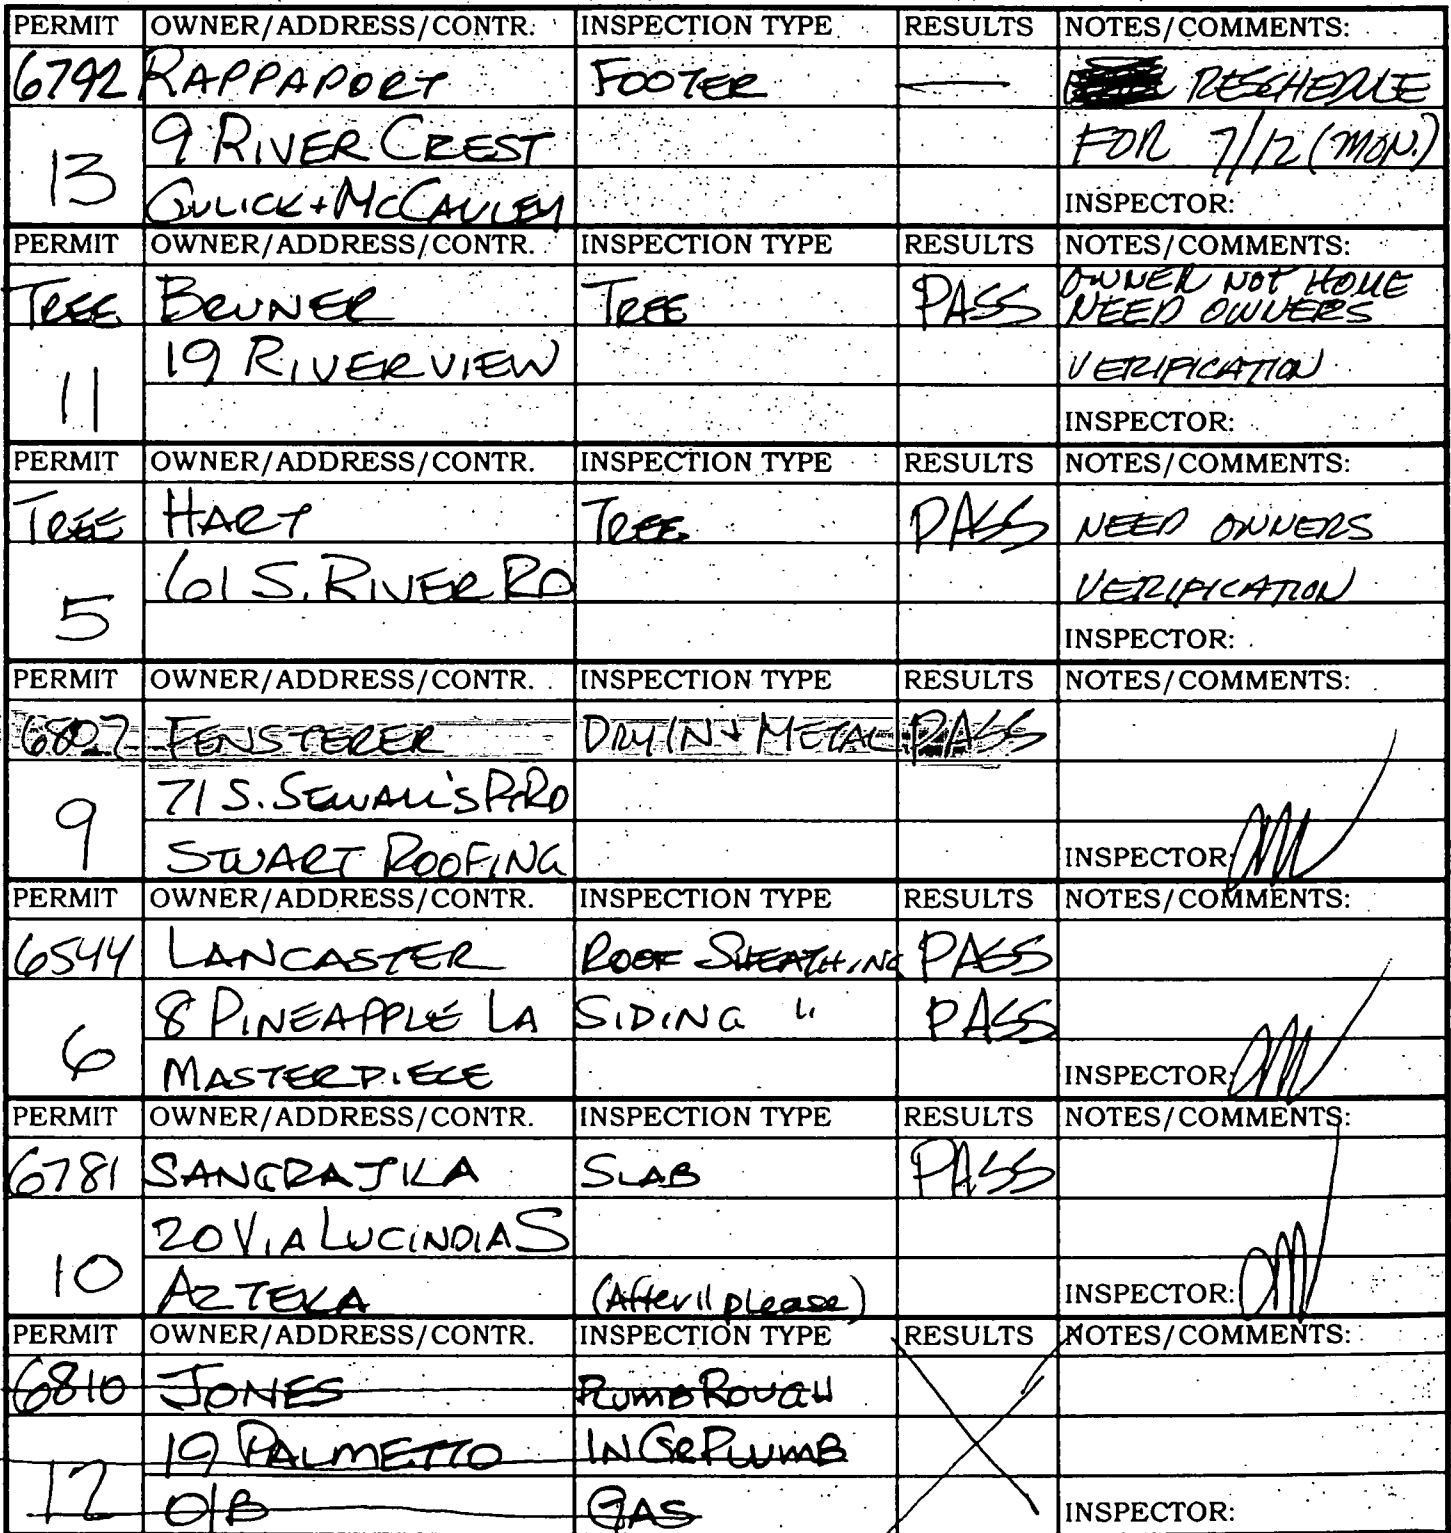 PERMIT OWNER/ADDRESS/CONTR. INSPECTION TYPE RESULTS NOTES/COMMENTS:
6792 RAPPAPORT FOOTER — RESCHEDULE
13 9 RIVER CREST FOR 7/12 (MON.)
GULICK + MCCAULEY INSPECTOR:
PERMIT OWNER/ADDRESS/CONTR. INSPECTION TYPE RESULTS NOTES/COMMENTS:
TREE BRUNER TREE PASS OWNER NOT HOME
NEED OWNERS
11 19 RIVERVIEW VERIFICATION
INSPECTOR:
PERMIT OWNER/ADDRESS/CONTR. INSPECTION TYPE RESULTS NOTES/COMMENTS:
TREE HART TREE PASS NEED OWNERS
5 61 S. RIVER RD VERIFICATION
INSPECTOR:
PERMIT OWNER/ADDRESS/CONTR. INSPECTION TYPE RESULTS NOTES/COMMENTS:
6827 FENSTERER DRY IN + METAL PASS
9 71 S. SEWALL'S PT RD
STUART ROOFING INSPECTOR:
PERMIT OWNER/ADDRESS/CONTR. INSPECTION TYPE RESULTS NOTES/COMMENTS:
6544 LANCASTER ROOF SHEATHING PASS
6 8 PINEAPPLE LA SIDING " PASS
MASTERPIECE INSPECTOR:
PERMIT OWNER/ADDRESS/CONTR. INSPECTION TYPE RESULTS NOTES/COMMENTS:
6781 SANGRAJKA SLAB PASS
10 20 VIA LUCINDIA S
AZTEKA (After 11 please) INSPECTOR:
PERMIT OWNER/ADDRESS/CONTR. INSPECTION TYPE RESULTS NOTES/COMMENTS:
6810 JONES PLUMB ROUGH
12 19 PALMETTO IN GR PLUMB
O/B GAS INSPECTOR: